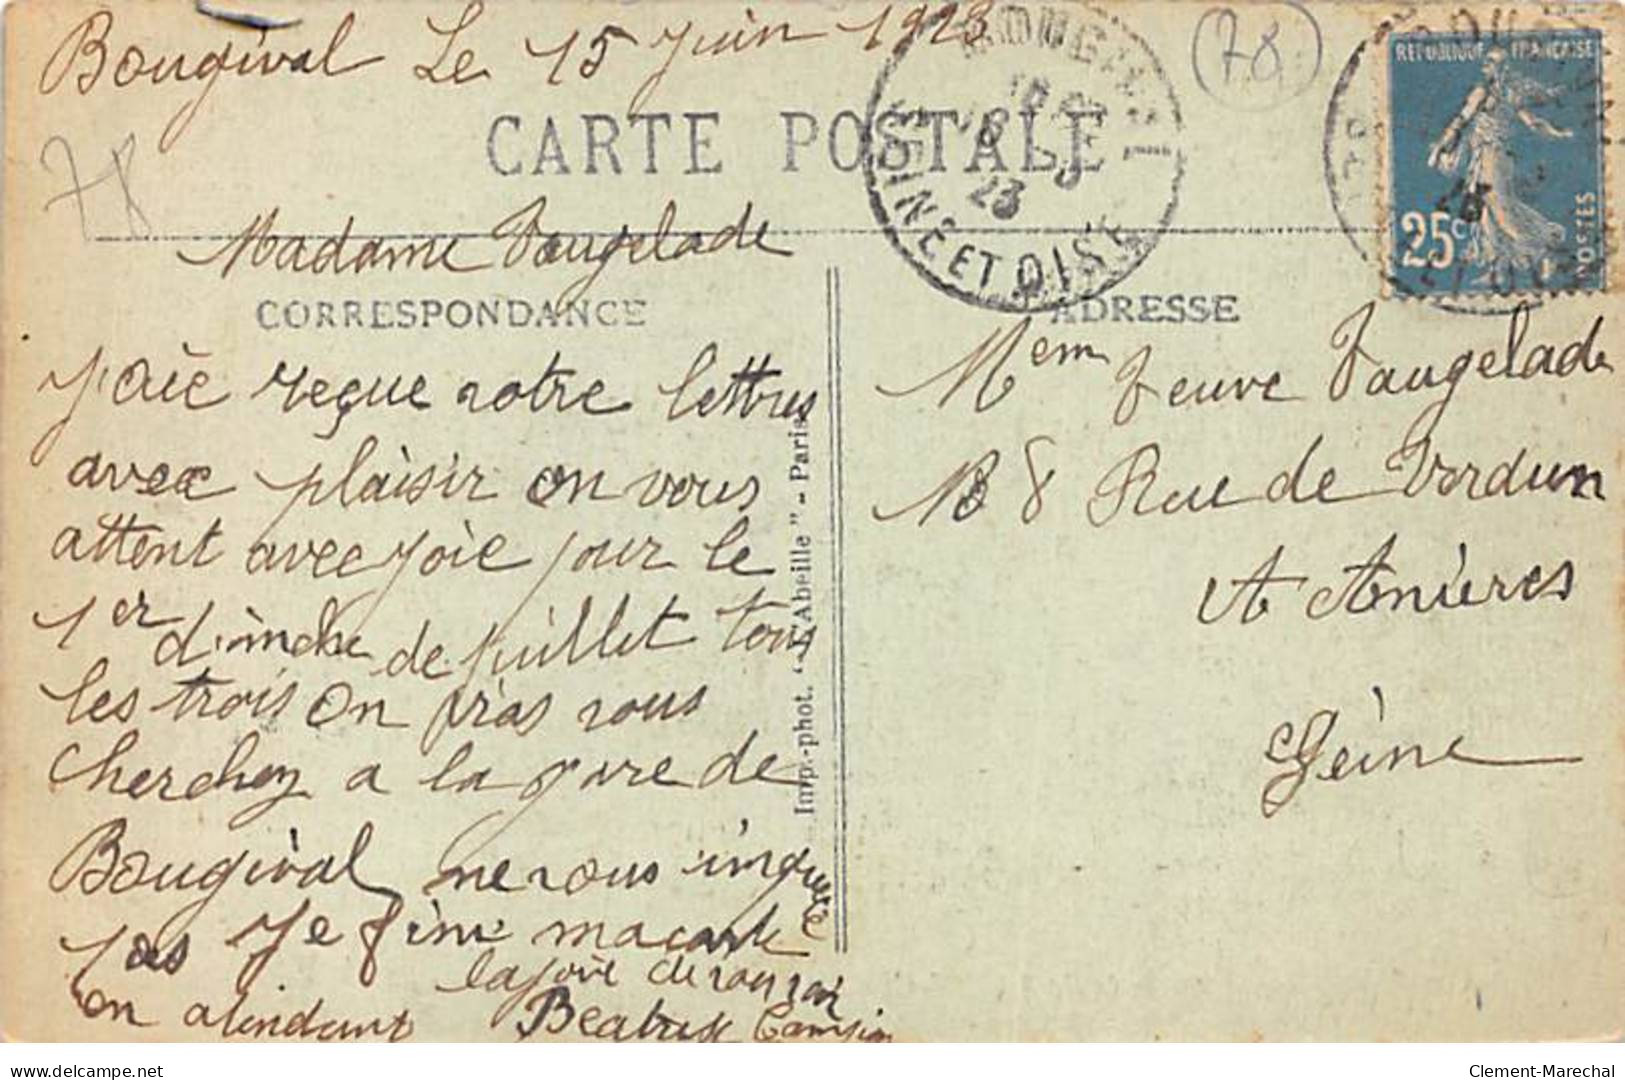 Bougival Le 15 Juin 1923
78
78
CARTE POSTALE
BOUGIVAL
SEINE ET OISE
23
REPUBLIQUE FRANÇAISE
25c
POSTES
Madame Vaugelade
CORRESPONDANCE
J'aie reçue votre lettres
avec plaisir on vous
attent avec joie pour le
1er dimche de juillet tous
les trois on iras vous
cherchez a la gare de
Bougival ne vous inquiete
pas Je fini ma carte
en atendant la joie de vous voir
Beatrix
Imp.-phot. "L'Abeille" - Paris
ADRESSE
Mem Veuve Vaugelade
8 Rue de Verdun
A Anières
Seine
Clement-Marechal
https://www.delcampe.net